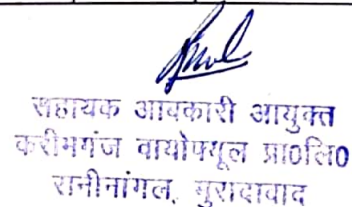 सहायक आबकारी आयुक्त
करीमगंज वायोफ्यूल प्रा0लि0
रानीनांगल, मुरादाबाद